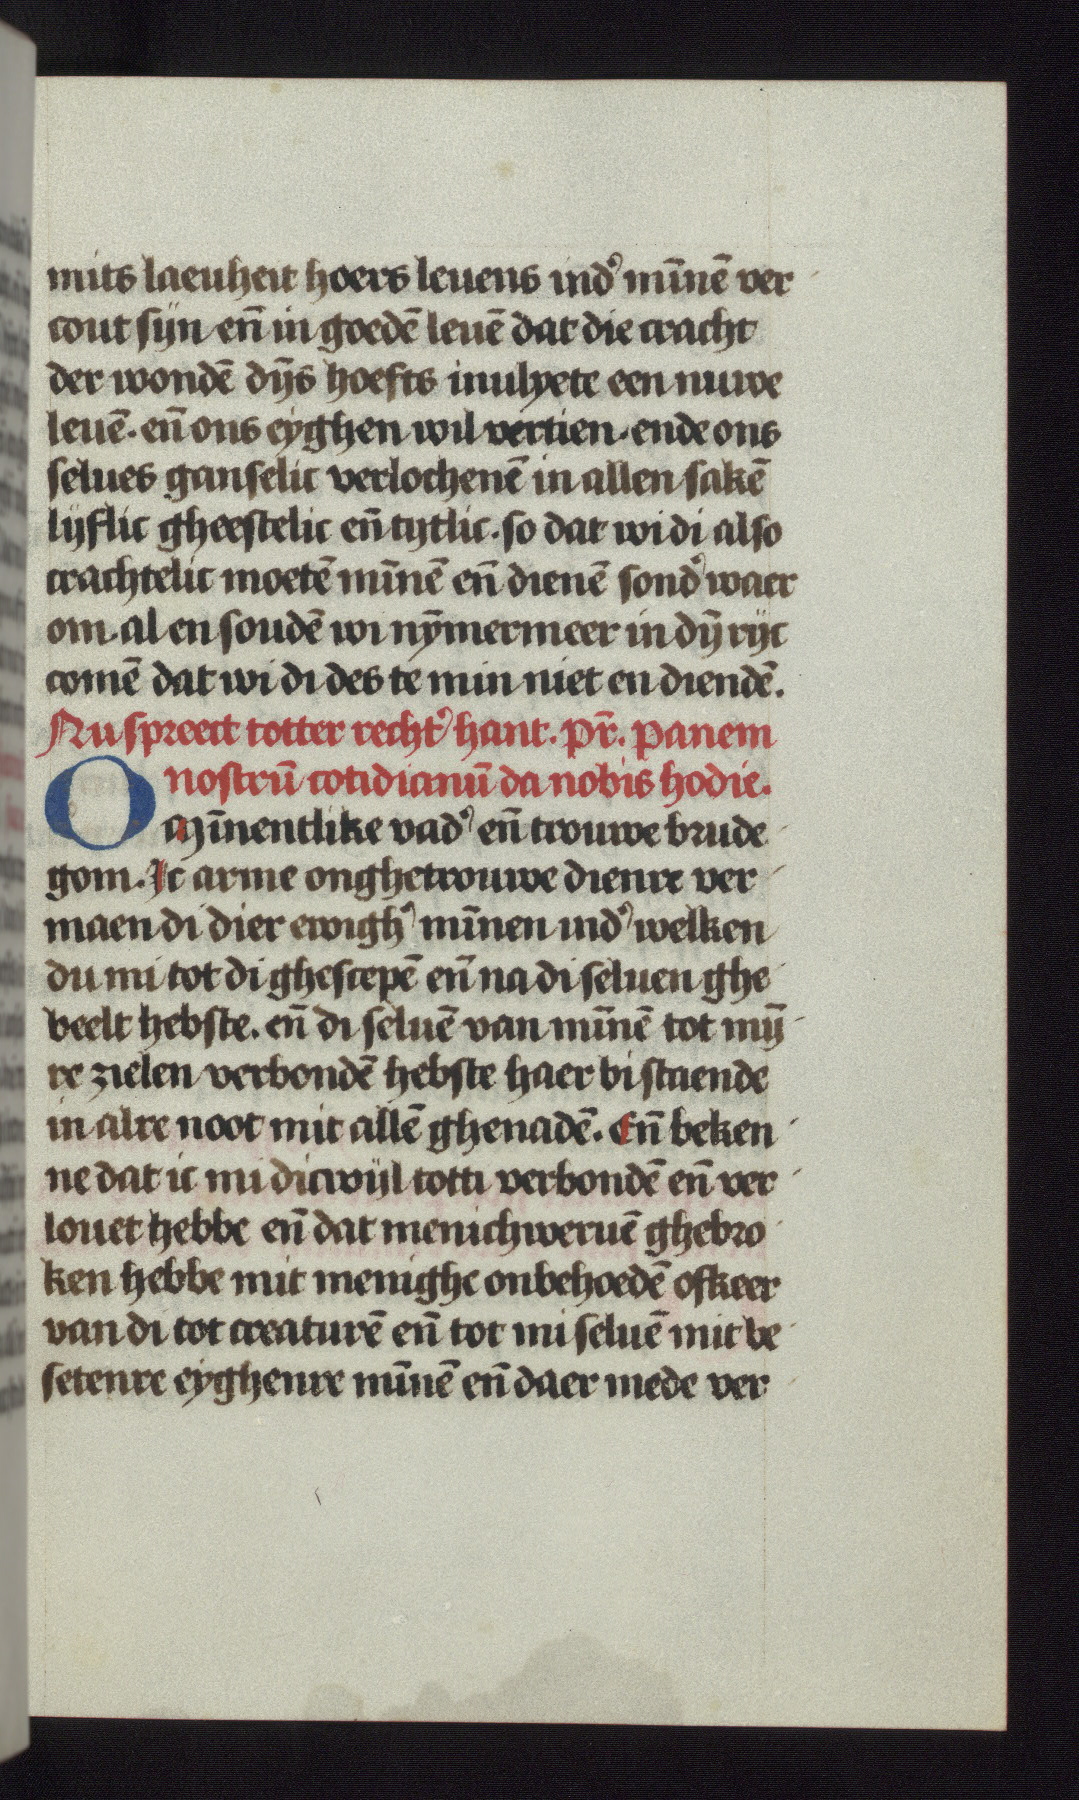 mits laeuheit hoers leuens indʾ mīnē ver
cout sijn en̄ in goedē leuē dat die cracht
der wondē dijs̄ hoefts inulyete een nuwe
leuē. en̄ ons eyghen wil vertien. ende ons
selues ganselic verlochenē in allen sakē
lijflic gheestelic en̄ tytlic. so dat wi di also
crachtelic moetē mīnē en̄ dienē sondʾ waer
om. al en soudē wi nȳmermeer in dij̄ rijc
comē dat wi di des te min niet en diendē.
Nu spreect totter rechtʾ hant. pr̄. panem
nostrū cotidianū da nobis hodie.
O Mīnentlike vadʾ en̄ trouwe brude
gom. Ic arme onghetrouwe dienre ver
maen di dier ewighʾ mīnen indʾ welken
du mi tot di ghescepē en̄ na di seluen ghe
beelt hebste. en̄ di seluē van mīnē tot mij̄
re zielen verbondē hebste haer bi staende
in alre noot mit allē ghenadē. En̄ beken
ne dat ic mi dicwijl totti verbondē en̄ ver
louet hebbe en̄ dat menichweruē ghebro
ken hebbe mit menighe onbehoedē ofkeer
van di tot creaturē en̄ tot mi seluē mit be
setenre eyghenre mīnē en̄ daer mede ver